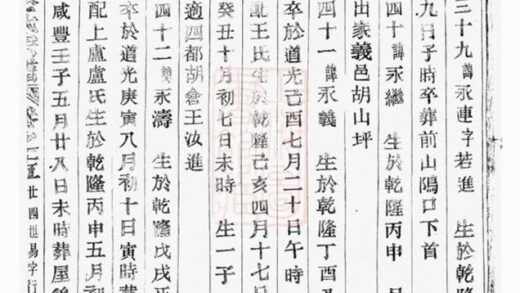 三十九 諱永連字若進 生於乾
九日子時卒葬前山隖口下首
四十 諱永繼 生於乾隆丙申
田家義邑胡山坪
四十一 諱永義 生於乾隆丁酉
卒於道光己酉七月二十日午時
配王氏生於乾隆己亥四月十七
癸丑十月初七日未時 生一子
適四都胡倉王汝進
四十二 諱永濤 生於乾隆戊戌
卒於道光庚寅八月初十日寅時葬
配上盧盧氏生於乾隆丙申五月初
咸豐壬子五月廿八日未時葬屋
廿四世易字行